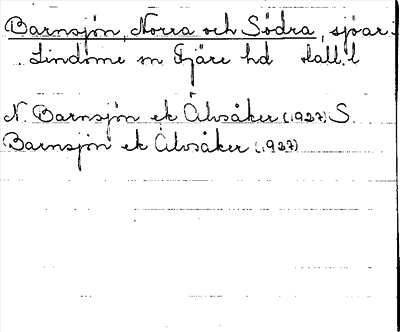 Barnsjön, Norra och Södra, sjöar.
Lindome sn Fjäre hd Hall. l
N. Barnsjön ek Älvsåker (1927) S.
Barnsjön ek Älvsåker (1927)